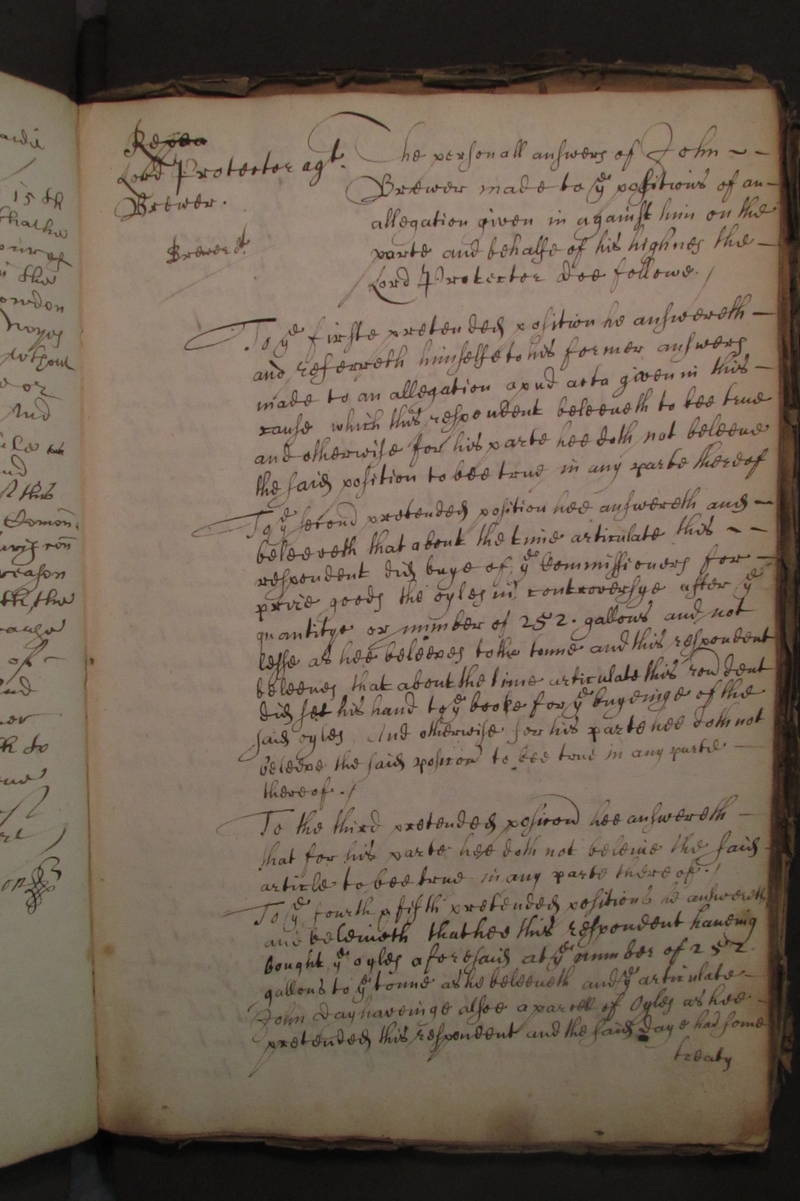 Repea
Lord Protector agt.
Brewer.
Brewer
The personall answers of John - -
Brewer made to ye positions of an -
allegation given in against him on the
parte and behalfe of his highnes the -
Lord Protector doe followe. /
To ye firste pretended position he answereth -
and referreth himselfe to his former answers
made to an allegation apud acta given in this -
cause which this respondent beleeveth to bee true
and otherwise for his parte hee doth not beleeve
the said position to bee true in any parte thereof
To ye second pretended position hee answereth and -
beleeveth that about the time articulate this - -
respondent did buye of ye Commissioners for -
prize goods the oyles in controversye after ye
quantitye or number of 252. gallons and not
lesse as hee beleeves to the tonne and this respondent
beleeves that about the time articulate this rondent
did set his hand to ye booke for ye buyeinge of the
said oyles And otherwise for his parte hee doth not
beleeve the said positon to bee true in any parte -
thereof. /
To the third pretended positon hee answereth -
that for his parte hee doth not beleeve the said -
article to bee true in any parte thereof. /
To ye fourth & fifth pretended positions he answereth
and beleiveth that hee this respondent haveing
bought ye oyles aforesaid at ye number of 252
gallons to ye tonne as he beleeveth and ye articulate -
John Day haveinge alsoe a parcell of Oyles as hee -
pretended this respondent and the said Daye had some
treaty
15th
the
or
And
this
reason
of -